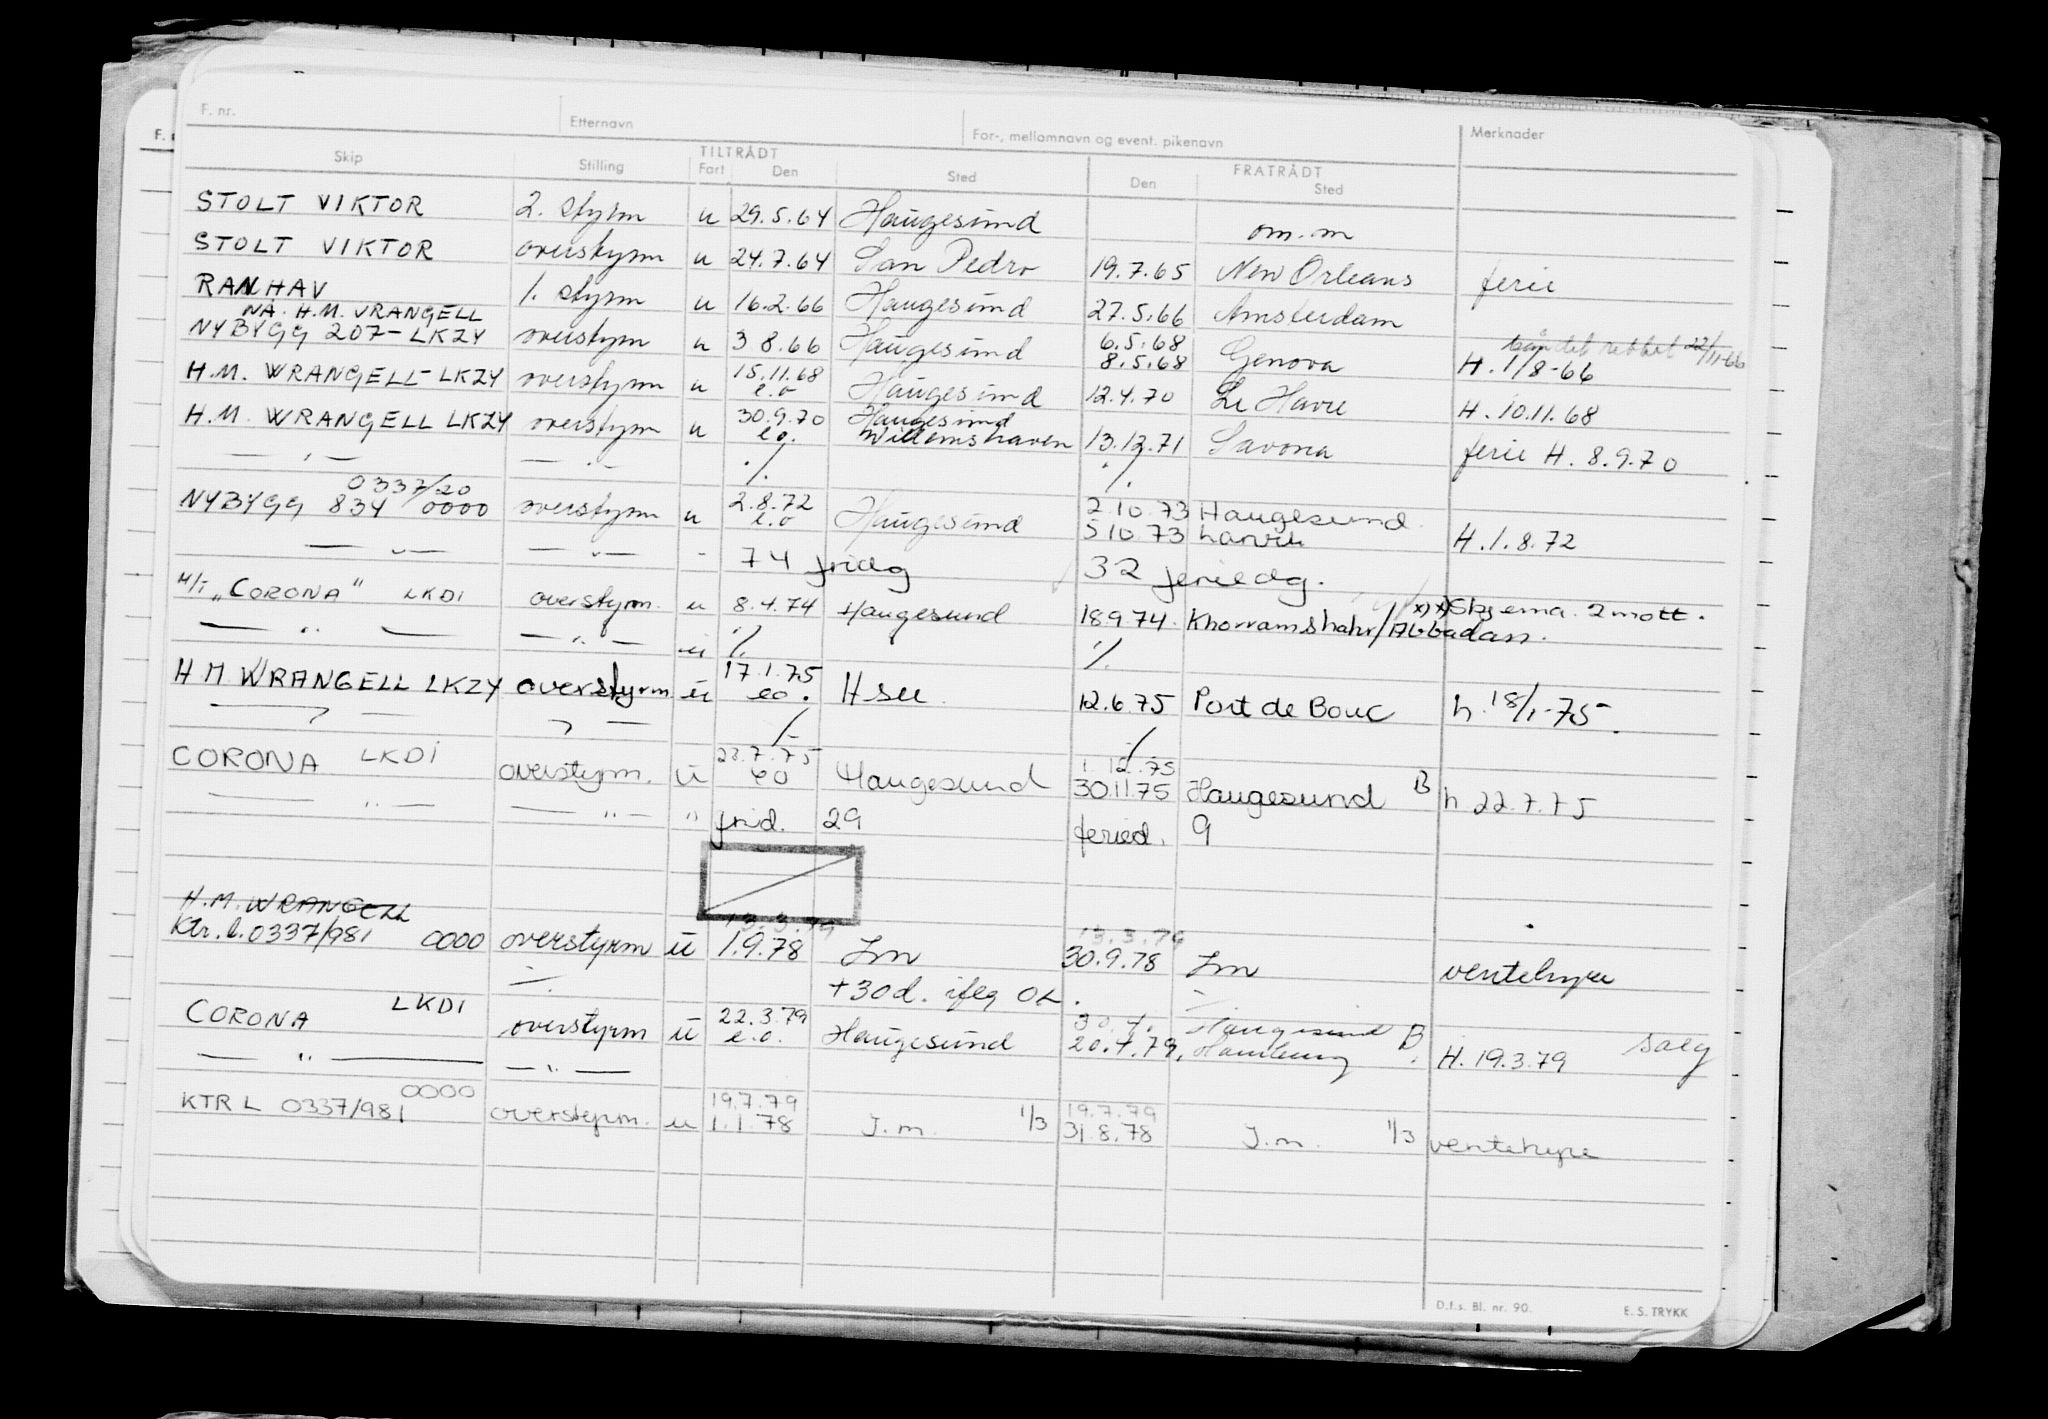 F. nr. Etternavn For-, mellomnavn og event. pikenavn Merknader
Skip Stilling TILTRÅDT Fart Den Sted FRATRÅDT Den Sted
STOLT VIKTOR 2. styrm u 29.5.64 Haugesund om.m
STOLT VIKTOR overstyrm u 24.7.64 San Pedro 19.7.65 New Orleans ferie
RANHAV 1. styrm u 16.2.66 Haugesund 27.5.66 Amsterdam
NÅ. H.M. VRANGELL 6.5.68 22/11-66
NYBYGG 207-LKZY overstyrm u 3 8.66 Haugesund 8.5.68 Genova H. 1/8-66
15.11.68
H.M. WRANGELL-LKZY overstyrm u e.o Haugesund 12.4.70 Le Havre H. 10.11.68
30.9.70 Haugesund
H.M. WRANGELL LKZY overstyrm u e.o. Willemshaven 13.12.71 Savona ferie H. 8.9.70
— " — — " — ./. ./.
0337/20 2.8.72 2.10.73 Haugesund
NYBYGG 834 0000 overstyrm u e.o Haugesund 5 10.73 Larvik H. 1.8.72
— " — — " — - 74 fridg 32 feriedg.
M/T "CORONA" LKDI overstyrm. u 8.4.74 Haugesund 18974. Khorramshahr/Abbadan. x) x) Skjema. 2 mott.
— " — — " — u ./. ./.
17.1.75
H M WRANGELL LKZY overstyrm. u eo. Hsu 12.6.75 Port de Bouc h. 18/1-75
— " — — " — ./. ./.
CORONA LKDI 23.7.75 1.12.75
overstyrm. u eo Haugesund 30.11.75 Haugesund B h 22.7.75
— " — — " — " frid. 29 feried. 9
H.M. WRANGELL 13.3.79 13.3.79
Ktr.l. 0337/981 0000 overstyrm u 1.9.78 Im 30.9.78 Im ventehyre
./. +30d. OK.
LKDI 22.3.79 30.4. Haugesund
CORONA overstyrm u e.o. Haugesund 20.4.79, Hamburg B. H. 19.3.79 salg
— " — — " —
0000 19.7.79 19.7.79
KTR L 0337/981 overstyrm. u 1.1.78 I.m. 1/3 31.8.78 I.m. 1/3 ventehyre
D.f.s. Bl. nr. 90. E. S. TRYKK